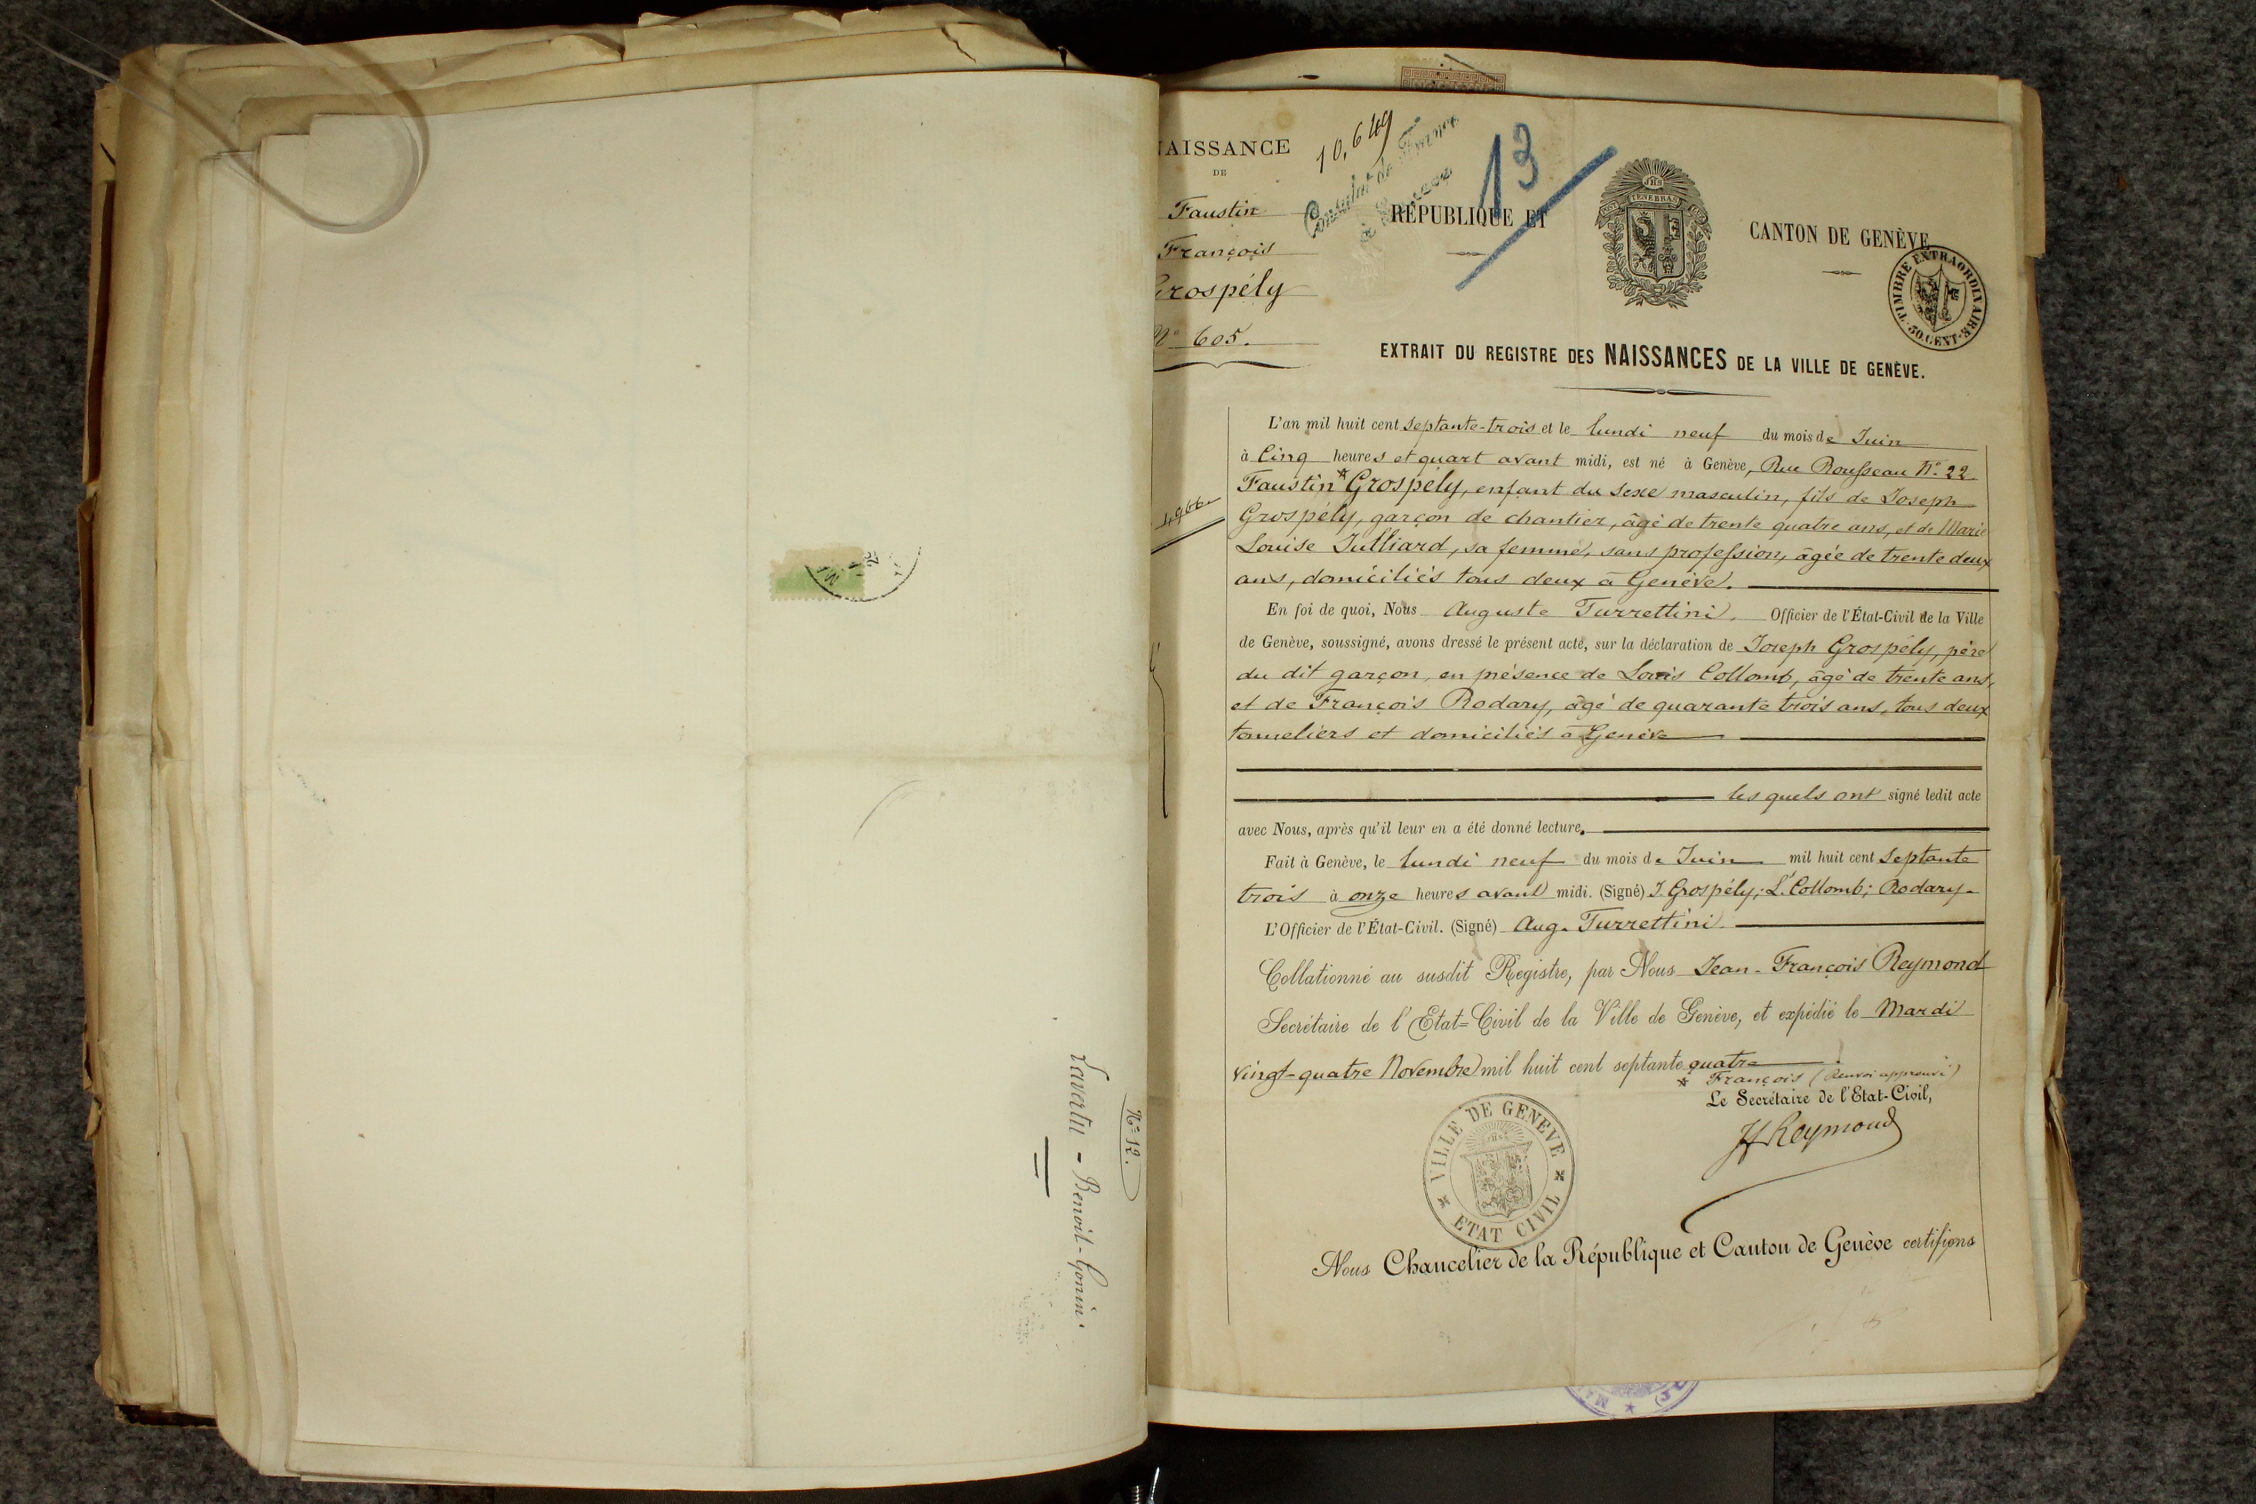 Nº 12.
Lavertu - Benoit-Gonin
NAISSANCE
DE
Faustin
François
Grospély
Nº 605.
10,649
Consulat de France
13
RÉPUBLIQUE ET
CANTON DE GENÈVE
JHS
TENEBRAS
TIMBRE EXTRAORDINAIRE
50 CENT.
EXTRAIT DU REGISTRE DES NAISSANCES DE LA VILLE DE GENÈVE.
L'an mil huit cent septante-trois et le lundi neuf du mois de Juin
à Cinq heures et quart avant midi, est né à Genève, Rue Rousseau Nº 22
Faustin * Grospély, enfant du sexe masculin, fils de Joseph
Grospély, garçon de chantier, âgé de trente quatre ans, et de Marie
Louise Julliard, sa femme, sans profession, âgée de trente deux
ans, domiciliés tous deux à Genève.
En foi de quoi, Nous Auguste Turrettini, Officier de l'État-Civil de la Ville
de Genève, soussigné, avons dressé le présent acte, sur la déclaration de Joseph Grospély, père
du dit garçon, en présence de Louis Collomb, âgé de trente ans,
et de François Rodary, âgé de quarante trois ans, tous deux
tonneliers et domiciliés à Genève
les quels ont signé ledit acte
avec Nous, après qu'il leur en a été donné lecture.
Fait à Genève, le lundi neuf du mois de Juin mil huit cent septante
trois à onze heures avant midi. (Signé) J. Grospély; L. Collomb; Rodary-
L'Officier de l'État-Civil. (Signé) Aug. Turrettini.
Collationné au susdit Registre, par Nous Jean-François Reymond
Secrétaire de l'Etat-Civil de la Ville de Genève, et expédié le Mardi
vingt-quatre Novembre mil huit cent septante quatre
* François (Renvoi approuvé)
Le Secrétaire de l'Etat-Civil,
JfReymond
VILLE DE GENEVE
ETAT CIVIL
Nous Chancelier de la République et Canton de Genève certifions